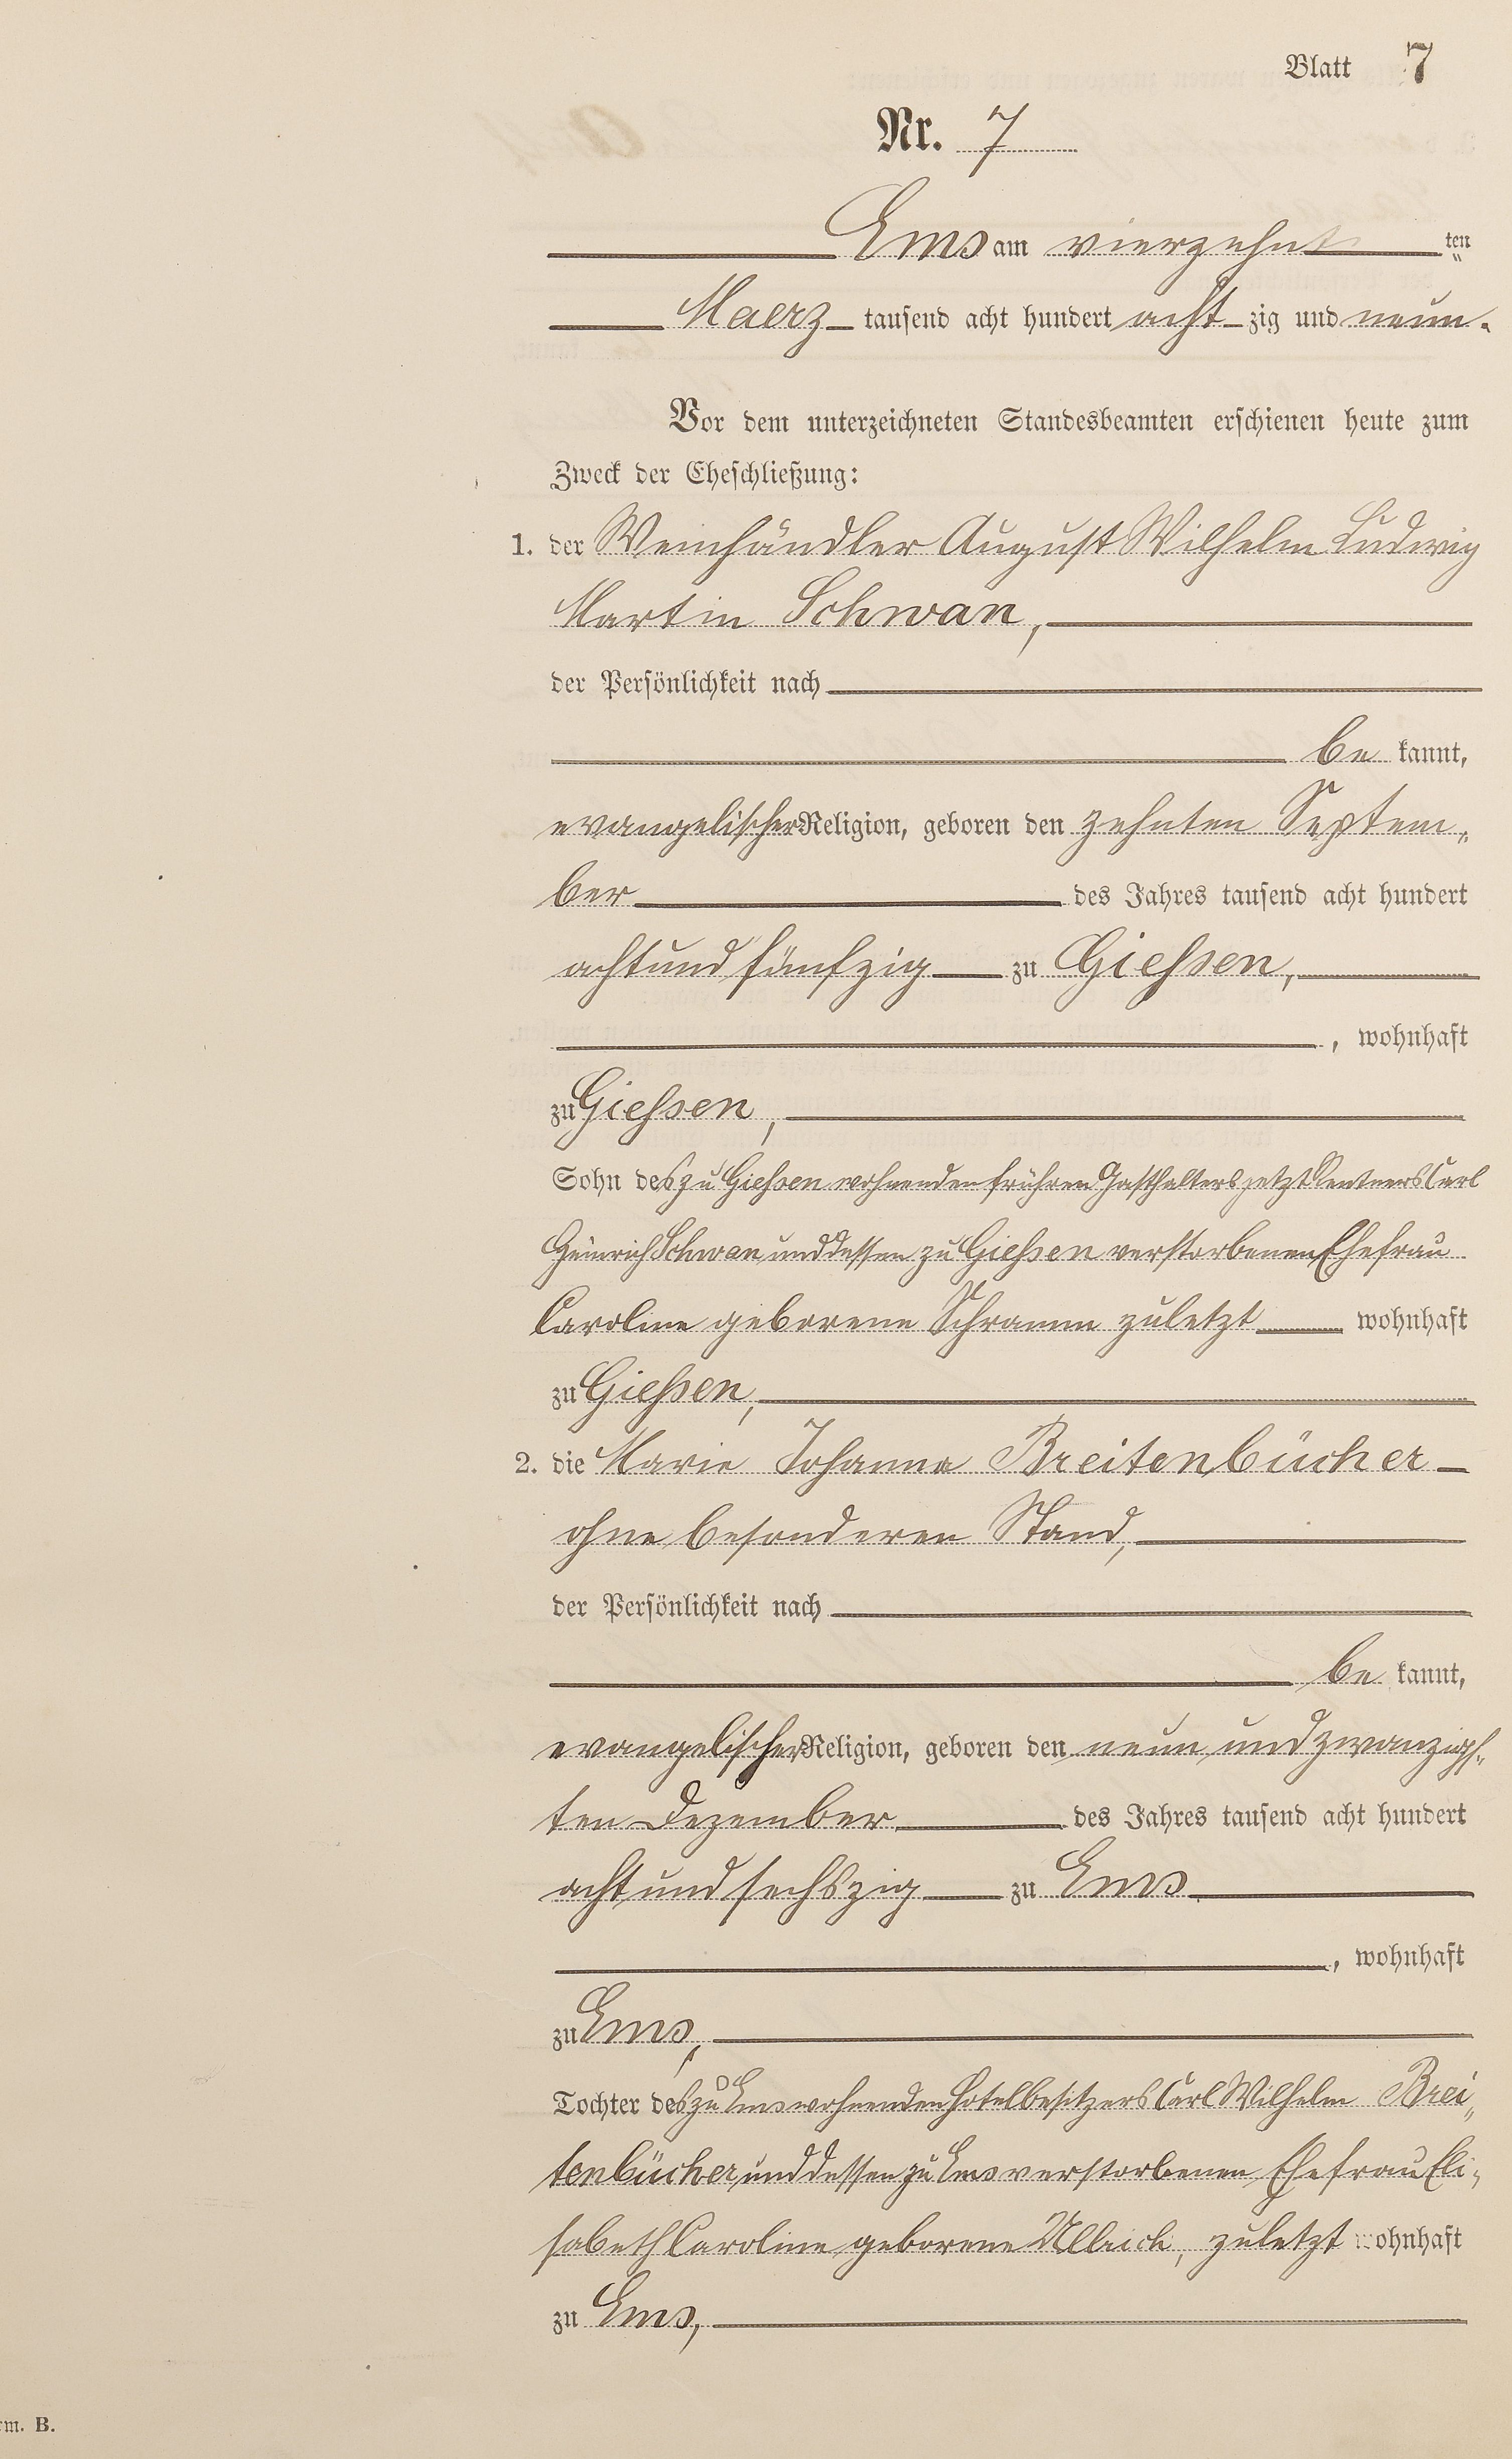 Blatt 7
Nr. 7
Ems am vierzehnt ten
Maerz tausend acht hundert acht zig und neun.
Vor dem unterzeichneten Standesbeamten erschienen heute zum
Zweck der Eheschließung:
1. der Weinhändler August Wilhelm Ludwig
Martin Schwan,
der Persönlichkeit nach
be kannt,
evangelischer Religion, geboren den zehnten Septem„
ber des Jahres tausend acht hundert
achtundfünfzig zu Gießen,
, wohnhaft
zu Gießen,
Sohn des zu Gießen wohnenden frühren Gasthalters jetzt Rentners Carl
Heinrich Schwan und dessen zu Gießen verstorbenen Ehefrau
Caroline geborene Schramm zuletzt wohnhaft
zu Gießen,
2. die Marie Johanna Breitenbücher
ohne besonderen Stand,
der Persönlichkeit nach
be kannt,
evangelischer Religion, geboren den neun und zwanzigs„
ten Dezember des Jahres tausend acht hundert
acht und sechszig zu Ems
, wohnhaft
zu Ems,
Tochter des zu Ems wohnenden Hotelbesitzers Carl Wilhelm Brei„
tenbücher und dessen zu Ems verstorbenen Ehefrau Eli„
sabeth Caroline geborene Ullrich, zuletzt wohnhaft
zu Ems,
rm. B.